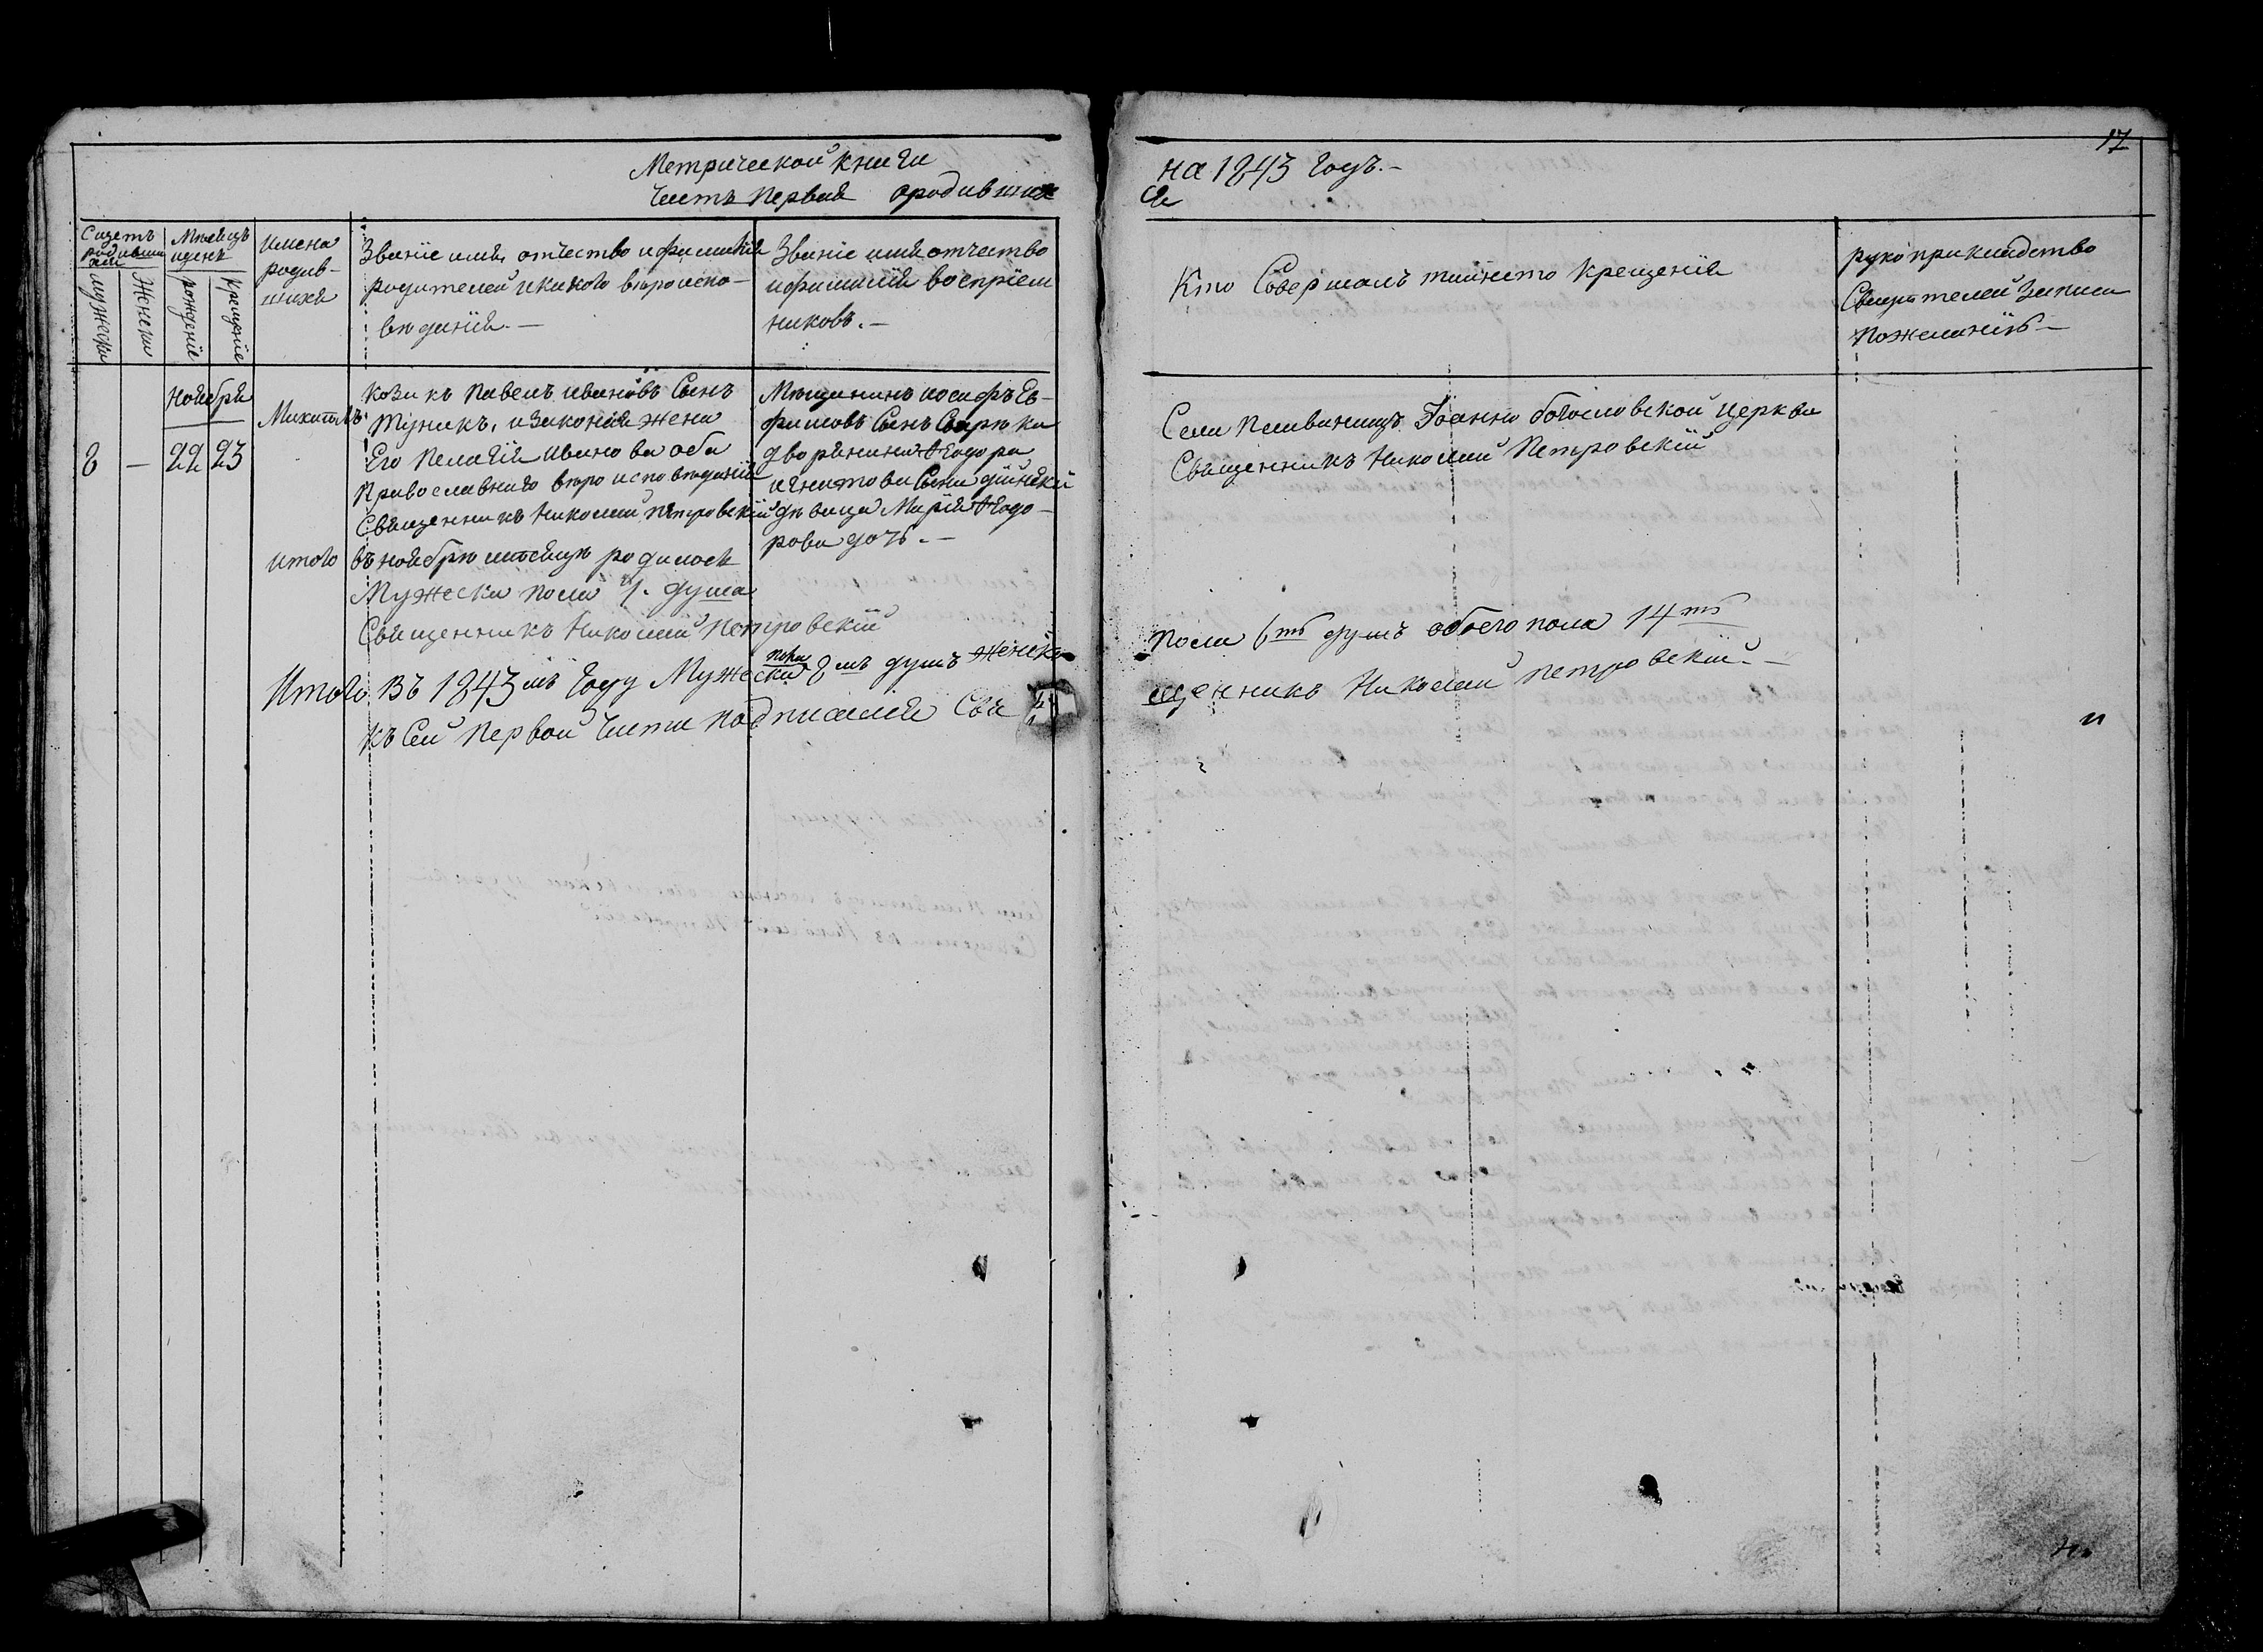 17
Метрической книги на 1843 Годъ.-
Часть Первая о родившихся
Счетъ родивши хся
Мужески
Женски
Мѣсяцъ и день
рождение
крещение
Имена родив-
шихся
Званіе имя, отчество и фамилія
родителей и какого вѣроиспо-
вѣданія.-
Званіе имя отчество
и фамилія воспріем
никовъ.-
Кто Совершалъ таинство Крещенія
рукоприкладство
Свидѣтелей записи
по желанію-
Ноября
8 - 22 23
Козакъ Павелъ Ивановъ Сынъ
и законная жена
Его Пелагія Иванова оба
Православнаго вѣроисповѣданія
Священникъ Николай Петровскій
Мѣщанинъ Иосифъ Еѳ-
имовъ Сынъ
дворянина Ѳеодора
Игнатова Сына
дѣвица Марія Ѳеодо-
рова дочь.-
Села Пешванищъ Іоанно богословской Церкви
Священникъ Николай Петровскій
итого въ ноябрѣ мѣсяцѣ родилося
Мужеска пола 1. душа
Священникъ Николай Петровскій
Итого въ 1843мъ Году Мужеска пола 8мъ душъ женска
пола 6ть душъ обоего пола 14ть
Къ Сей Первой Части подписался Свя
щенникъ Николай Петровскій.-